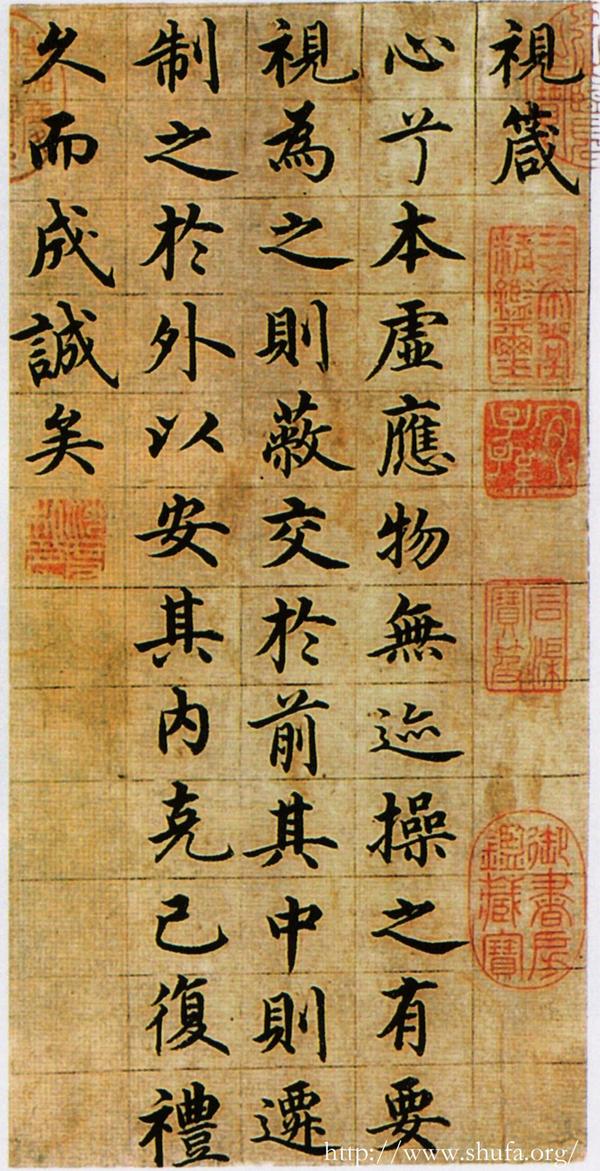 視箴
心兮本虛應物無迹操之有要
視為之則蔽交於前其中則遷
制之於外以安其內克己復禮
久而成誠矣
三希堂精鑑璽
宜子孫
石渠寶笈
御書房鑑藏寶
http://www.shufa.org/